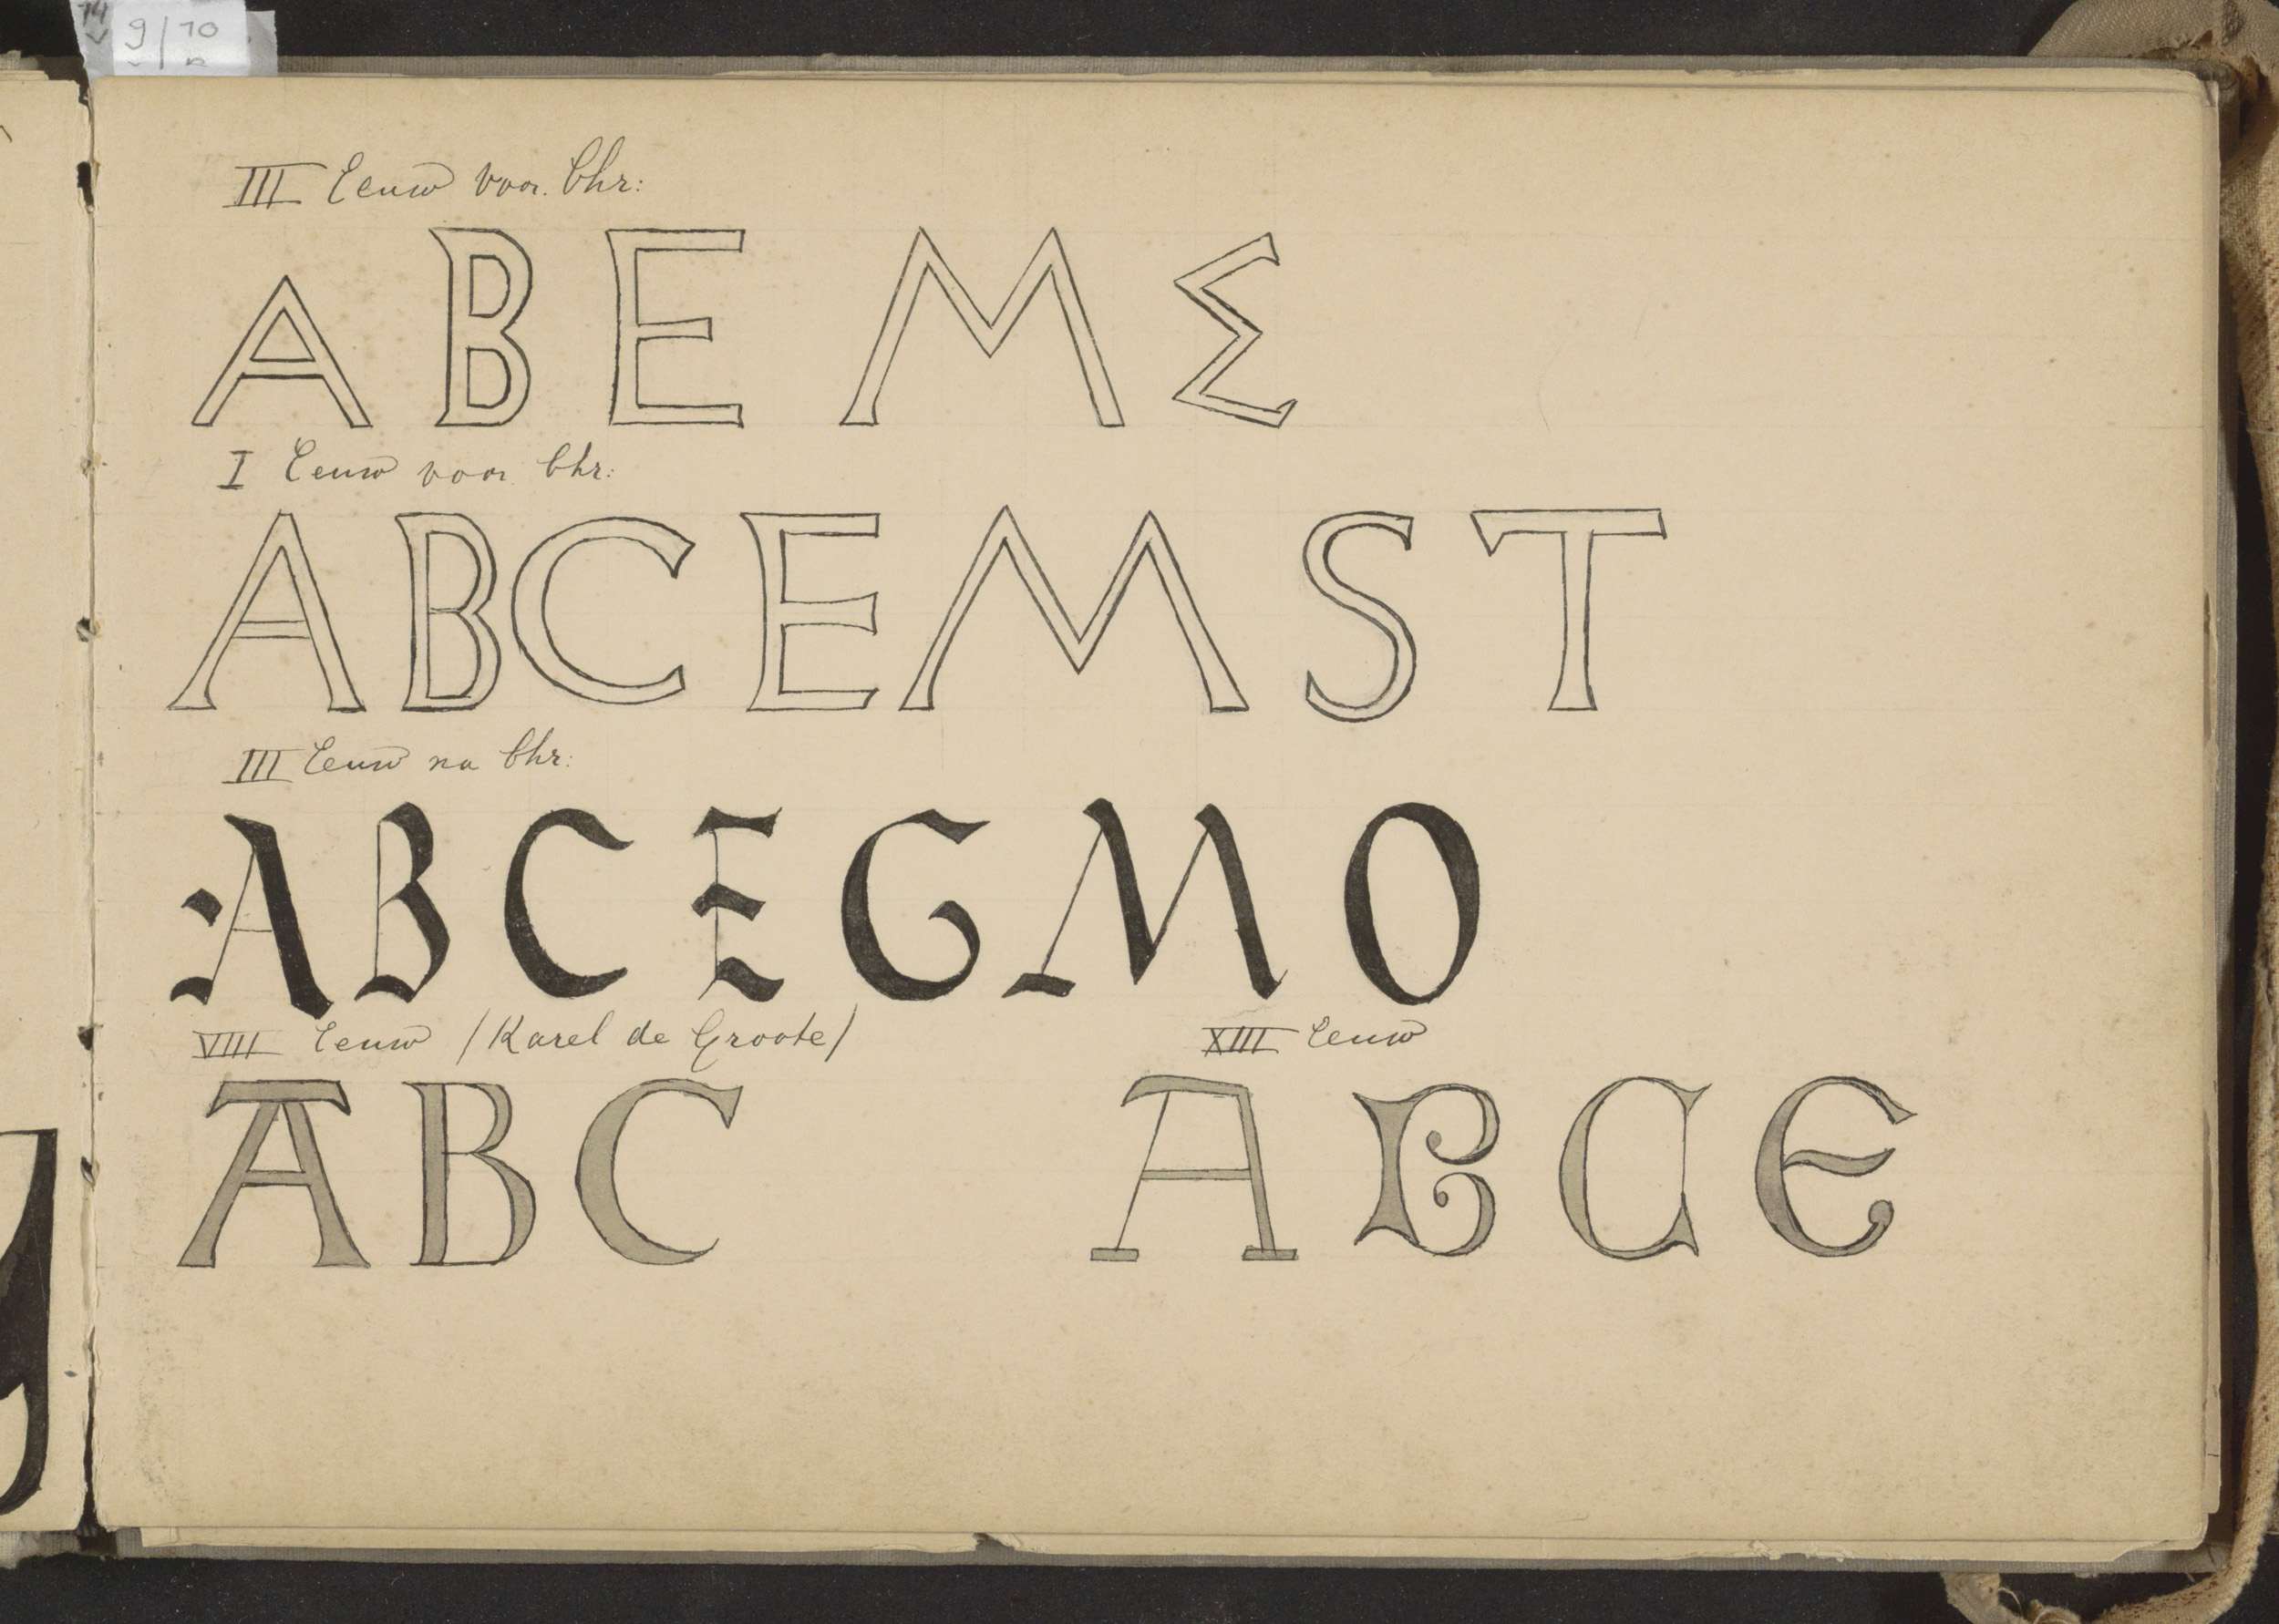 14 9/10
III Eeuw voor. Chr:
A B E M Σ
I Eeuw voor Chr:
A B C E M S T
III Eeuw na Chr:
A B C E G M O
VIII Eeuw /Karel de Groote/ XIII Eeuw
A B C A B C E